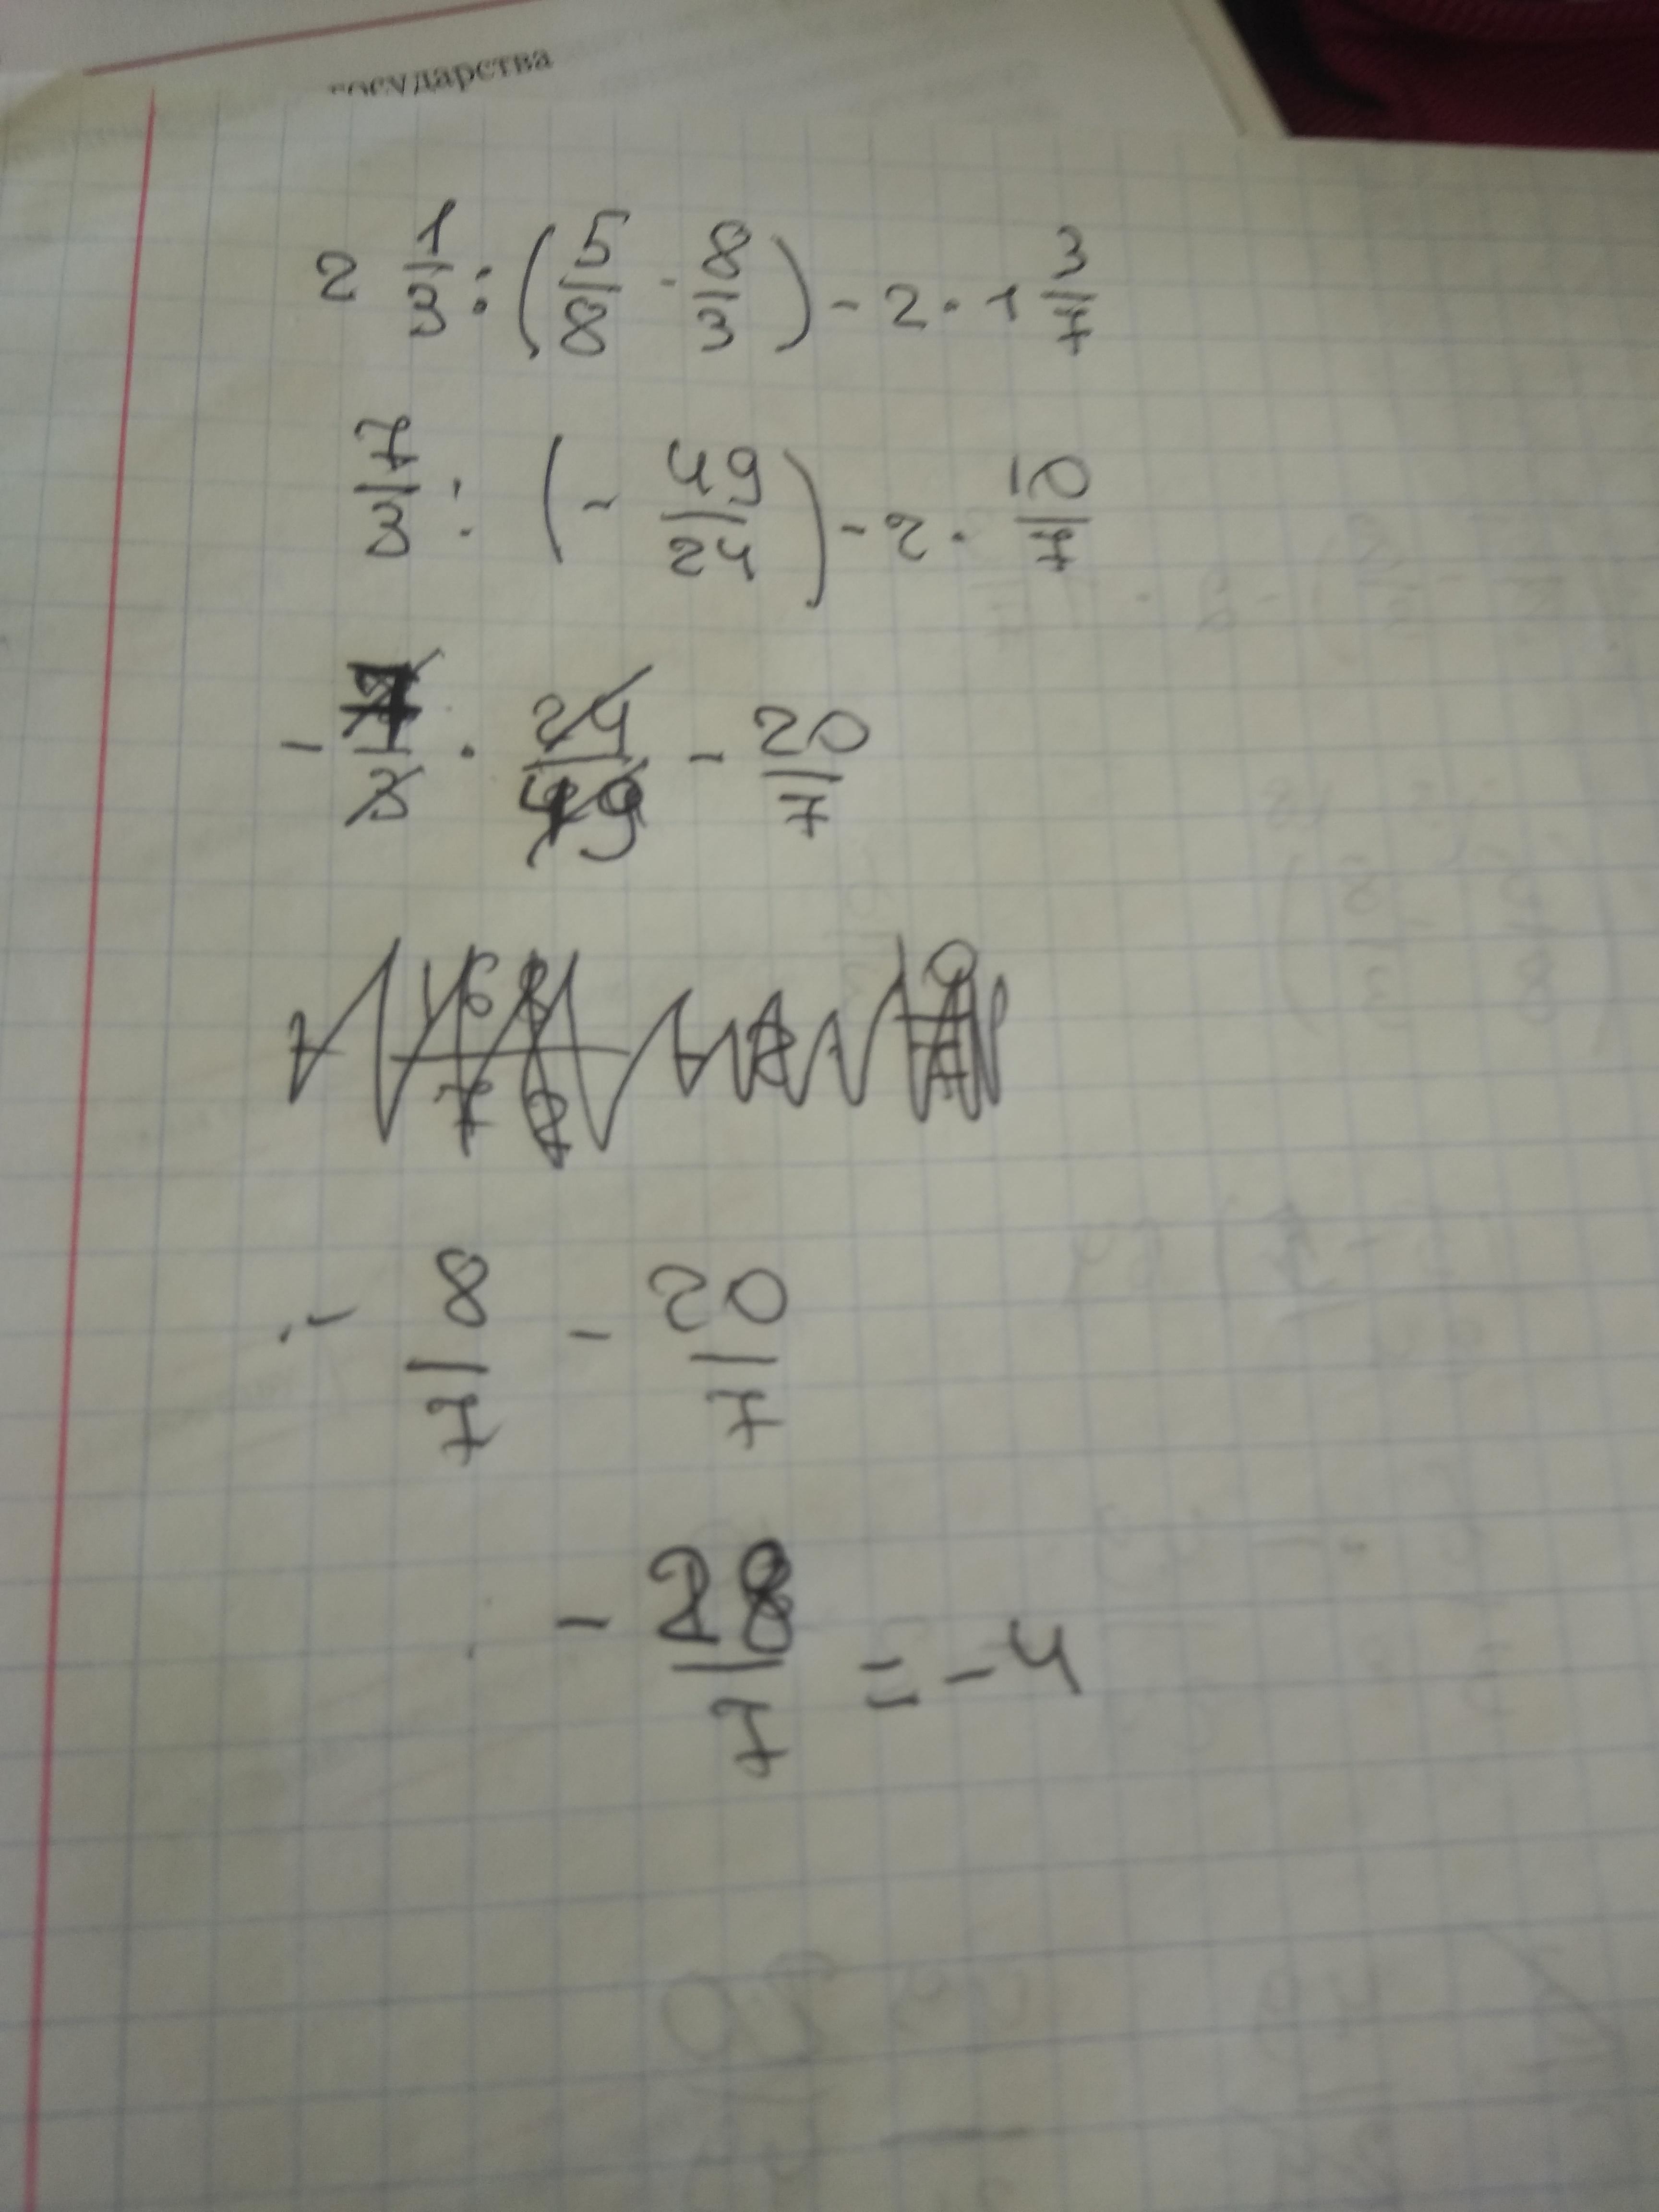 государства
2 1/3 : (5/8 - 8/3) - 2 · 1 3/7
7/3 : (- 49/24) - 2 · 10/7
- 7/3 · 24/49 - 20/7
- 8/7 - 20/7
- 28/7 = -4